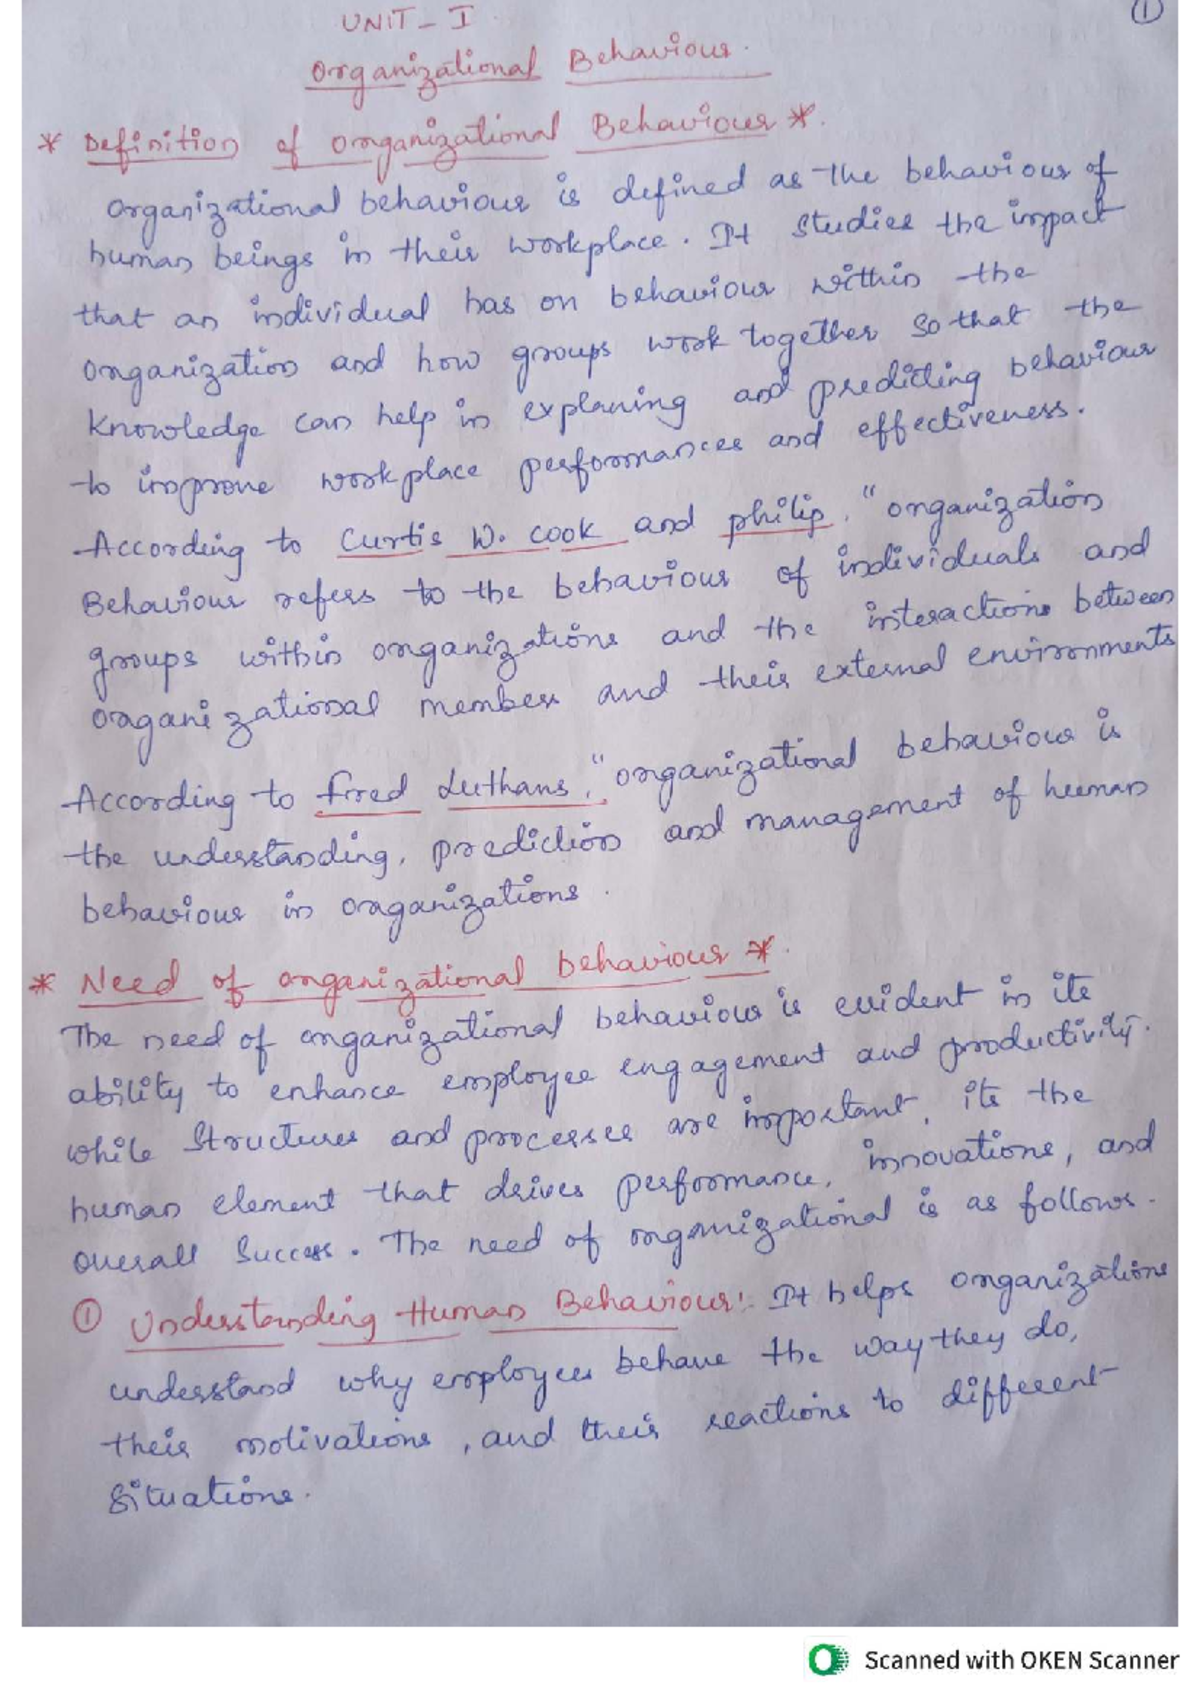 ①
UNIT - I
Organizational Behaviour.
* Definition of Organizational Behaviour *.
Organizational behaviour is defined as the behaviour of
human beings in their workplace. It studies the impact
that an individual has on behaviour within the
Organization and how groups work together so that the
knowledge can help in explaning and predicting behaviour
to improve workplace performances and effectiveness.
According to Curtis W. cook and philip, "organization
Behaviour refers to the behaviour of individuals and
groups within organizations and the interactions between
organizational members and their external environments
According to fired Luthans, "organizational behaviour is
the understanding, prediction and management of human
behaviour in organizations.
* Need of organizational behaviour *.
The need of organizational behaviour is evident in its
ability to enhance employee engagement and productivity.
while Structures and processes are important, its the
human element that drives performance, innovations, and
overall Success. The need of organizational is as follows.
① Understanding Human Behaviour: It helps organizations
understand why employees behave the way they do,
their motivations, and their reactions to different
Situations.
Scanned with OKEN Scanner